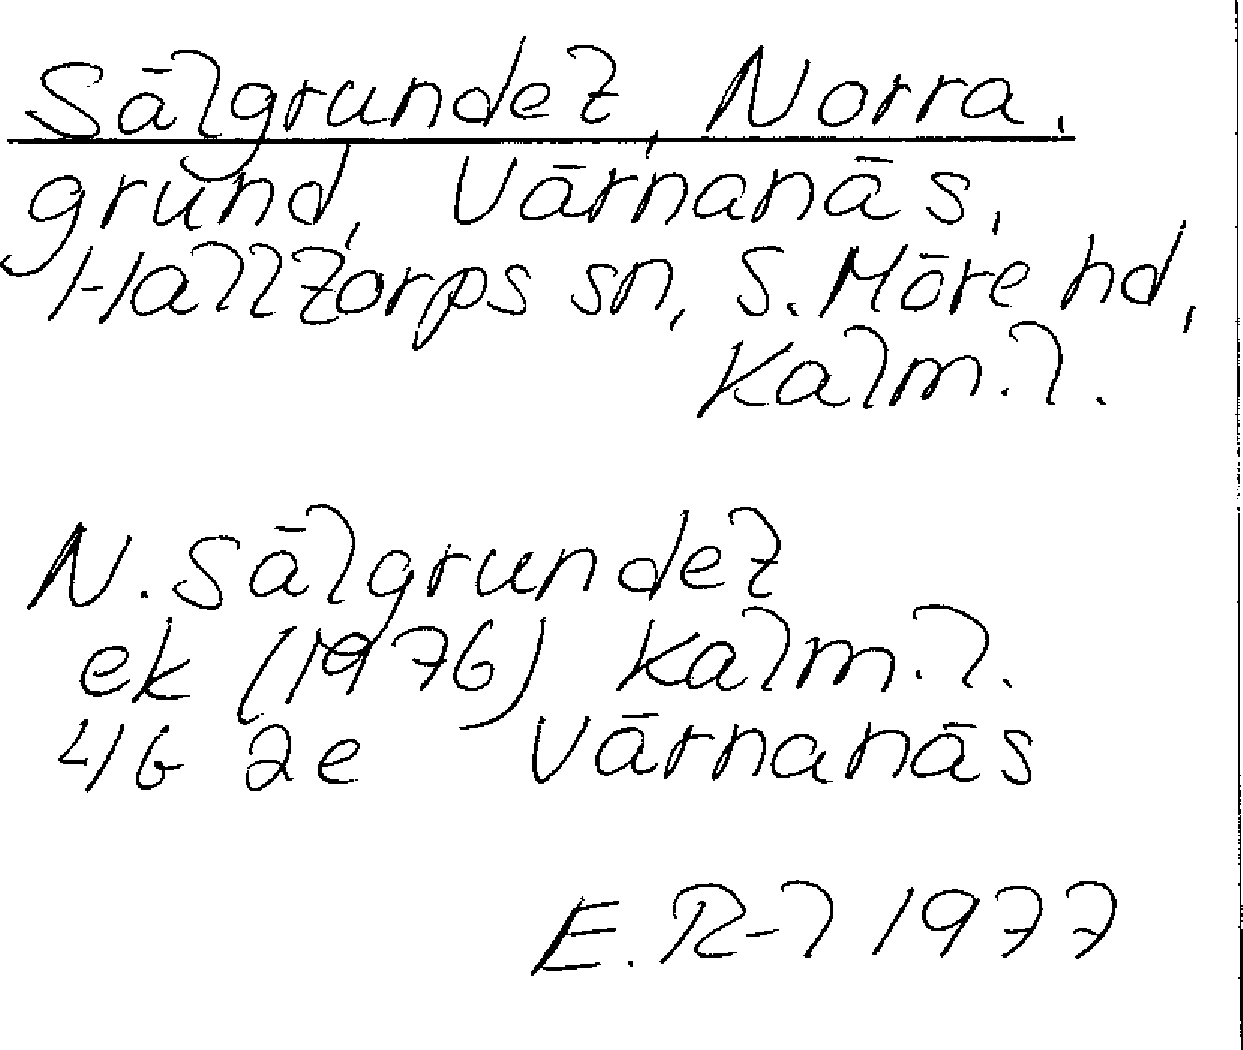 Sälgrundet, Norra,
grund, Värnanäs,
Halltorps sn, S. Möre hd,
Kalm. l.
N. Sälgrundet
ek (1976) Kalm. l.
4G 2e Värnanäs
E. R-l 1977